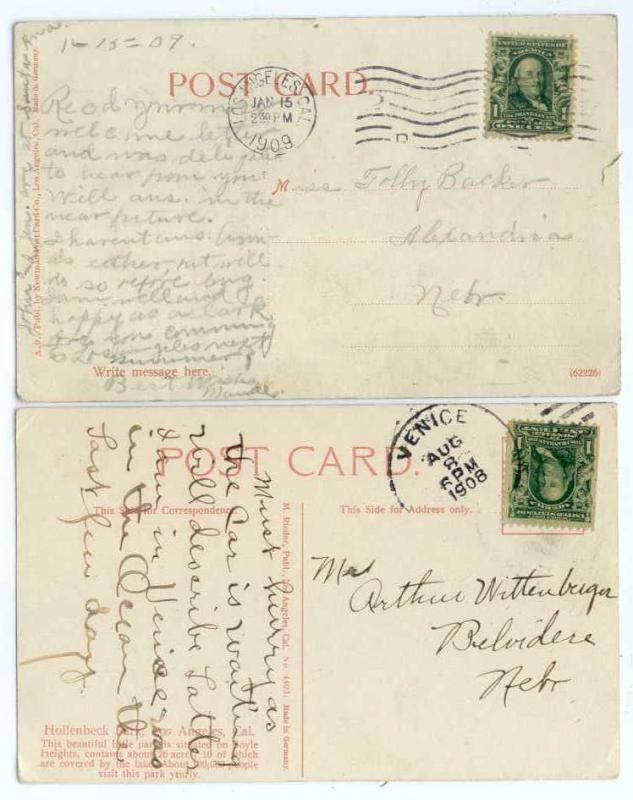 1-15-09.
POST CARD.
LOS ANGELES, CAL.
JAN 15
2 30 PM
1909
UNITED STATES OF AMERICA
1 1
ONE CENT
Rec'd your
welcome letter
and was
to hear from you.
Will ans. in the
near future.
I havent ans.
either, but will
do so before long
I am well and
happy as a lark
Are you comming
to Los Angeles next
summer?
Best Wishes
Maude.
Miss Tolly Backer
Alexandria
Nebr.
A. O. Publ. by Newman Post Card Co., Los Angeles, Cal. Made in Germany.
Write message here.
(62226)
POST CARD.
VENICE
AUG
8
6 PM
1908
This Side for Correspondence.
This Side for Address only.
Must hurry as
the Car is waiting
Will describe Later
I am in Venice was
in the Ocean the
Last few days.
Mrs
Arthur Wittenberger
Belvidere
Nebr.
M. Rieder, Publ., Los Angeles, Cal. No. 4493. Made in Germany.
Hollenbeck Park, Los Angeles, Cal.
This beautiful little park is situated on Boyle
Heights, contains about 26 acres, 10 of which
are covered by the lake. About 200,000 people
visit this park yearly.